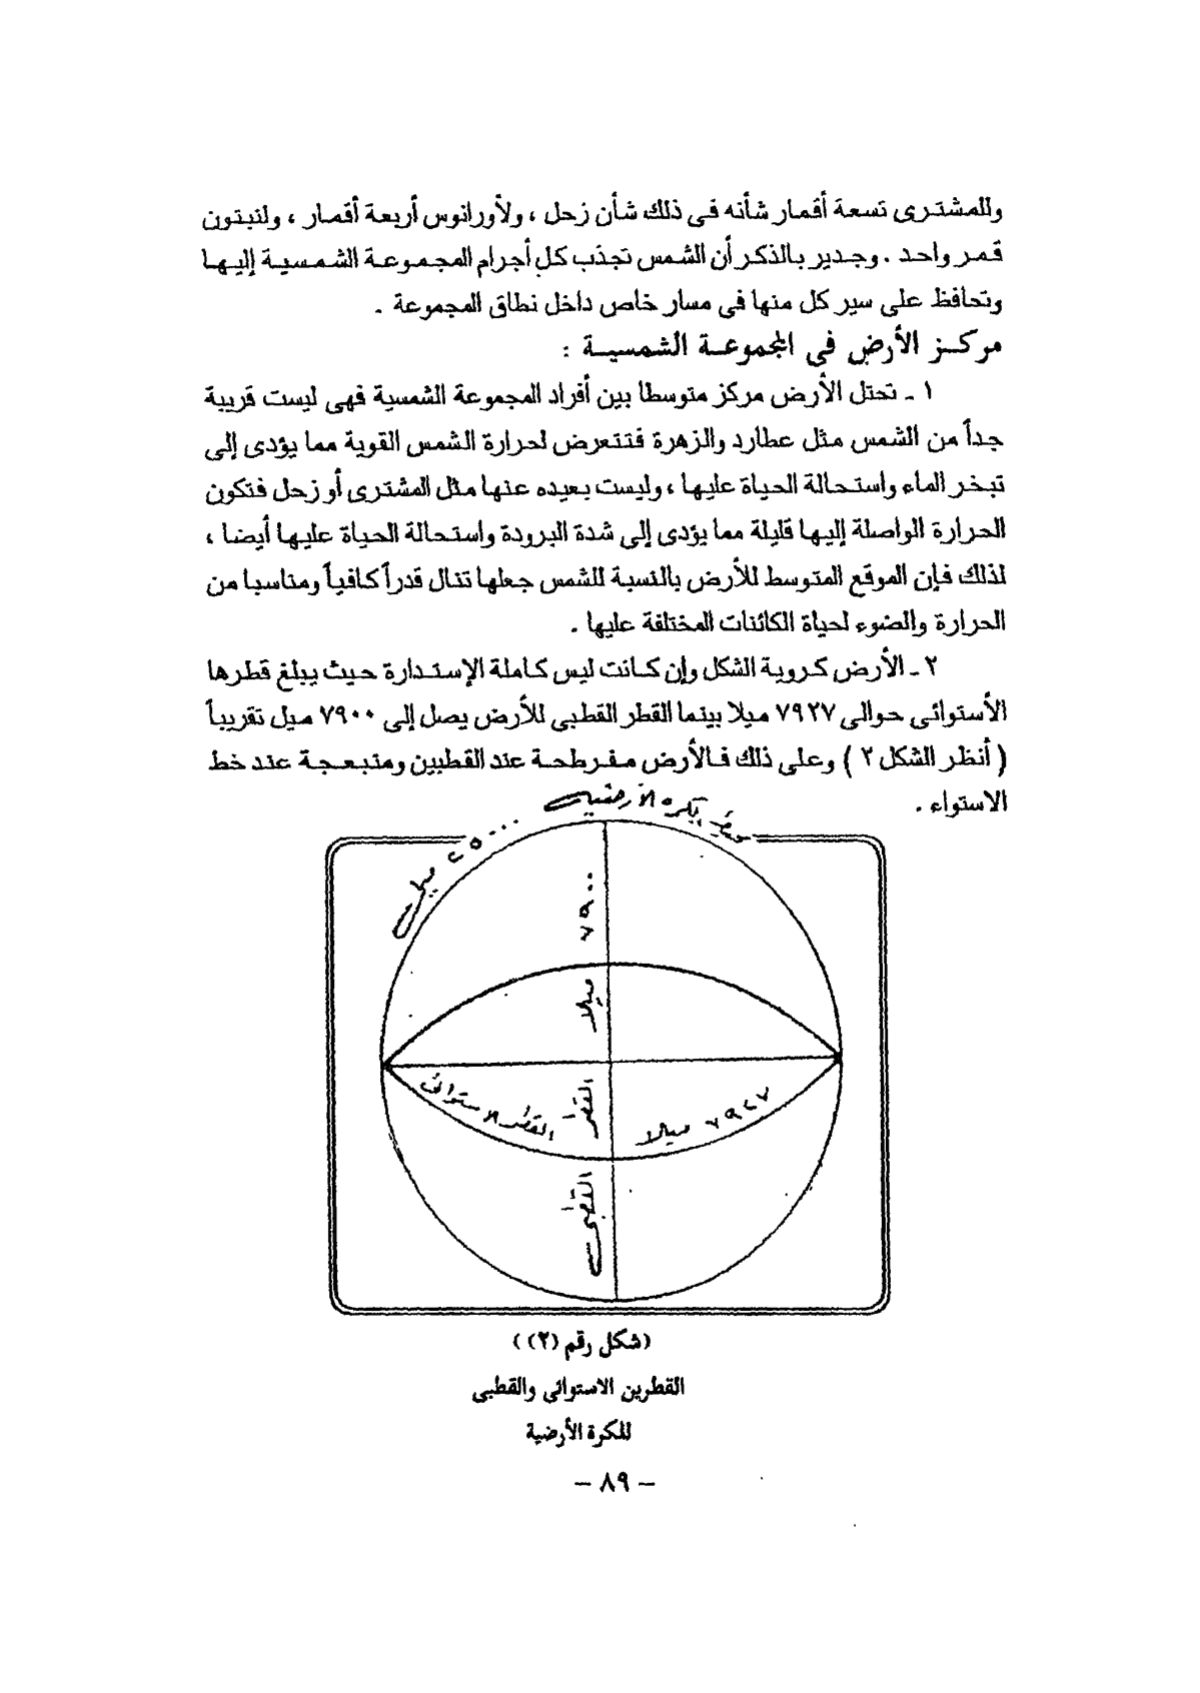 وللمشترى تسعة أقمار شأنه فى ذلك شأن زحل ، ولأورانوس أربعة أقمار ، ولنبتون
قمر واحد . وجدير بالذكر أن الشمس تجذب كل أجرام المجموعة الشمسية إليها
وتحافظ على سير كل منها فى مسار خاص داخل نطاق المجموعة .
مركز الأرض فى المجموعة الشمسية :
١ ـ تحتل الأرض مركز متوسطا بين أفراد المجموعة الشمسية فهى ليست قريبة
جداً من الشمس مثل عطارد والزهرة فتتعرض لحرارة الشمس القوية مما يؤدى إلى
تبخر الماء واستحالة الحياة عليها ، وليست بعيده عنها مثل المشترى أو زحل فتكون
الحرارة الواصلة إليها قليلة مما يؤدى إلى شدة البرودة واستحالة الحياة عليها أيضا ،
لذلك فإن الموقع المتوسط للأرض بالنسبة للشمس جعلها تنال قدراً كافياً ومناسبا من
الحرارة والضوء لحياة الكائنات المختلفة عليها .
٢ ـ الأرض كروية الشكل وإن كانت ليس كاملة الإستدارة حيث يبلغ قطرها
الأستوائى حوالى ٧٩٢٧ ميلا بينما القطر القطبى للأرض يصل إلى ٧٩٠٠ ميل تقريباً
( أنظر الشكل ٢ ) وعلى ذلك فالأرض مفرطحة عند القطبين ومنبعجة عند خط
الاستواء .
محيط الكرة الأرضية ٢٥٠٠٠ ميل
٧٩٠٠ ميلا القطر القطبى
القطر الاستوائى ٧٩٢٧ ميلا
(شكل رقم (٢) )
القطرين الاستوائى والقطبى
للكرة الأرضية
– ٨٩ –